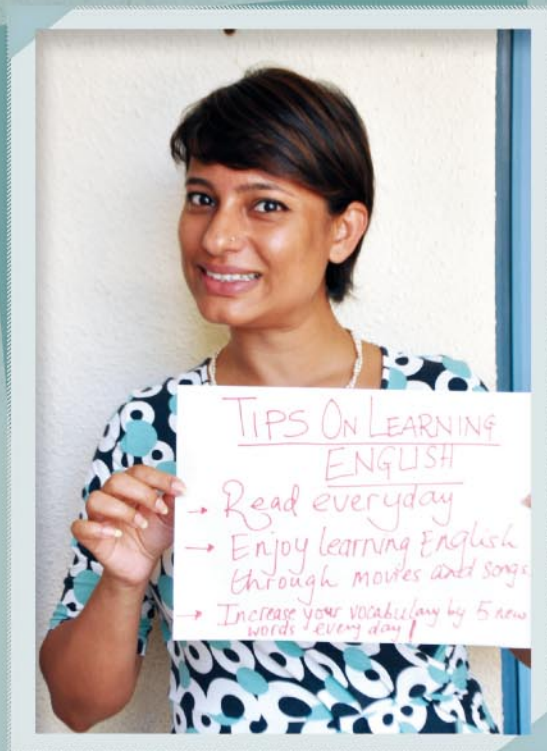 TIPS ON LEARNING
ENGLISH
→ Read everyday
→ Enjoy learning English
through movies and songs
→ Increase your vocabulary by 5 new
words every day!